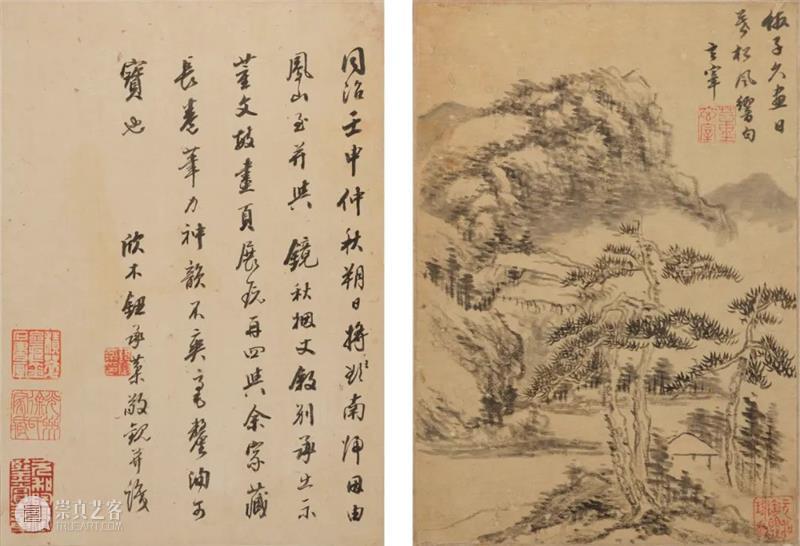 同治壬申仲秋朔日將欲南歸因由
鳳山至并與 鏡秋姻丈叙别承出示
董文敏畫頁展玩再四與余家藏
長卷筆力神韻不爽毫釐洵可
寶也
欣木鈕承 敬觀并識
倣子久畫日
暮松風響句
玄宰
崇真艺客
WWW.TRUEART.COM